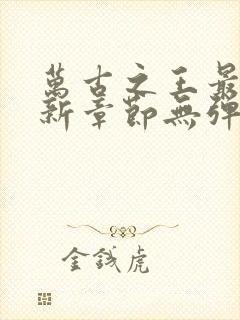 萬古之王最
新章節無彈
金錢虎